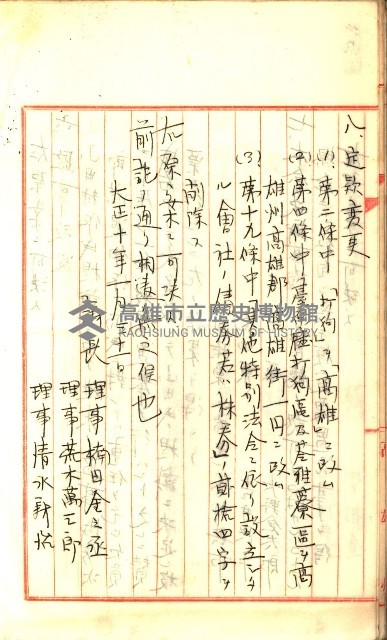 八、定款変更
(1) 第二條中「打狗」ヲ「高雄」ニ改ム
(2) 第四條中「臺灣打狗區及苓雅藔區」ヲ高
雄州高雄郡高雄街一円ニ改ム
(3) 第十九條中「其他特別法令ニ依リ設立シタ
ル會社ノ債券若ハ株券」ノ
削除ス
右原案ニ可決
前記ノ通リ相違 候也
大正十年一月三十一日
長 理事 楠田金之丞
理事 荒木萬三郎
理事 清水
高雄市立歷史博物館
KAOHSIUNG MUSEUM OF HISTORY